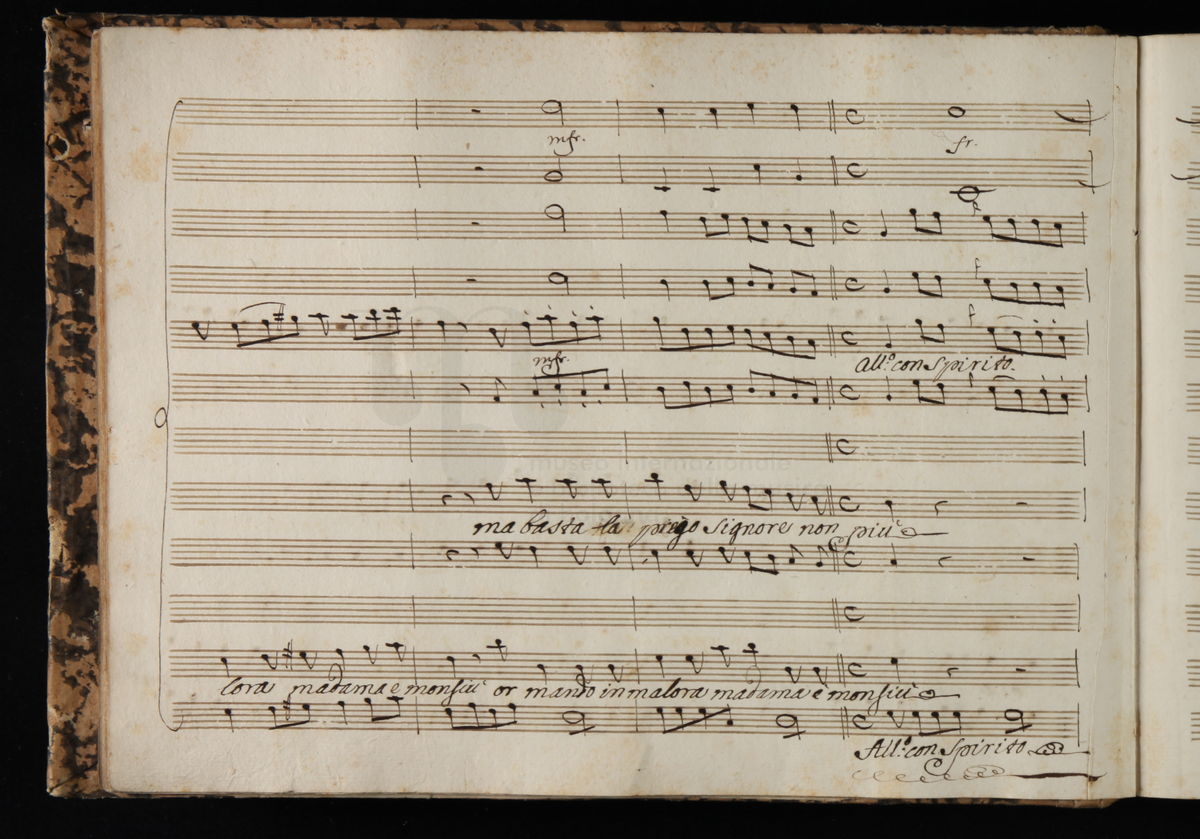 mfr.
fr.
f
f
f
mfr.
All.º con Spirito.
museo internazionale
ma basta la priego Signore non più
lora madama e monsiù or mando in malora madama e monsiù
All.º con Spirito